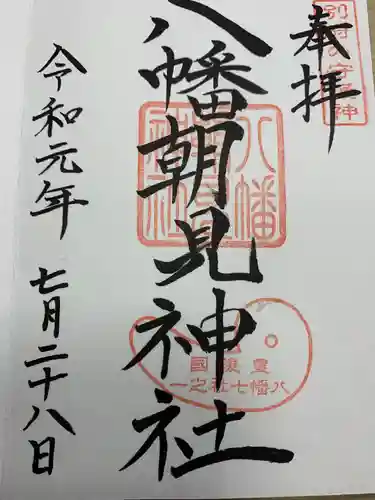 奉拝
別府の守護神
八幡朝見神社
八幡朝見神社
豊後國
八幡七社之一
令和元年 七月二十八日